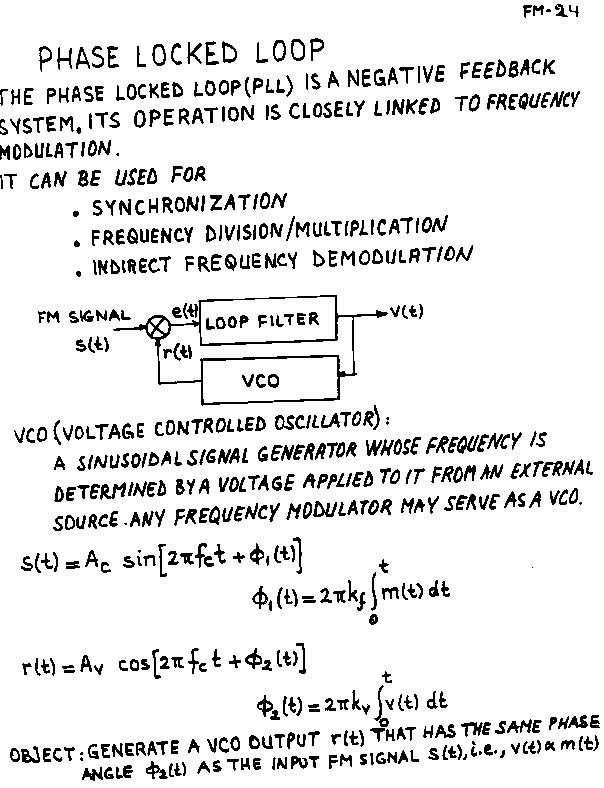 FM-24
PHASE LOCKED LOOP
THE PHASE LOCKED LOOP(PLL) IS A NEGATIVE FEEDBACK
SYSTEM, ITS OPERATION IS CLOSELY LINKED TO FREQUENCY
MODULATION.
IT CAN BE USED FOR
• SYNCHRONIZATION
• FREQUENCY DIVISION/MULTIPLICATION
• INDIRECT FREQUENCY DEMODULATION
FM SIGNAL e(t) LOOP FILTER v(t)
s(t) r(t)
VCO
VCO (VOLTAGE CONTROLLED OSCILLATOR):
A SINUSOIDAL SIGNAL GENERATOR WHOSE FREQUENCY IS
DETERMINED BY A VOLTAGE APPLIED TO IT FROM AN EXTERNAL
SOURCE. ANY FREQUENCY MODULATOR MAY SERVE AS A VCO.
s(t) = A_c sin[2πf_c t + ϕ_1(t)]
ϕ_1(t) = 2πk_f ∫_0^t m(t) dt
r(t) = A_v cos[2πf_c t + ϕ_2(t)]
ϕ_2(t) = 2πk_v ∫_0^t v(t) dt
OBJECT: GENERATE A VCO OUTPUT r(t) THAT HAS THE SAME PHASE
ANGLE ϕ_2(t) AS THE INPUT FM SIGNAL s(t), i.e., v(t) ∝ m(t)